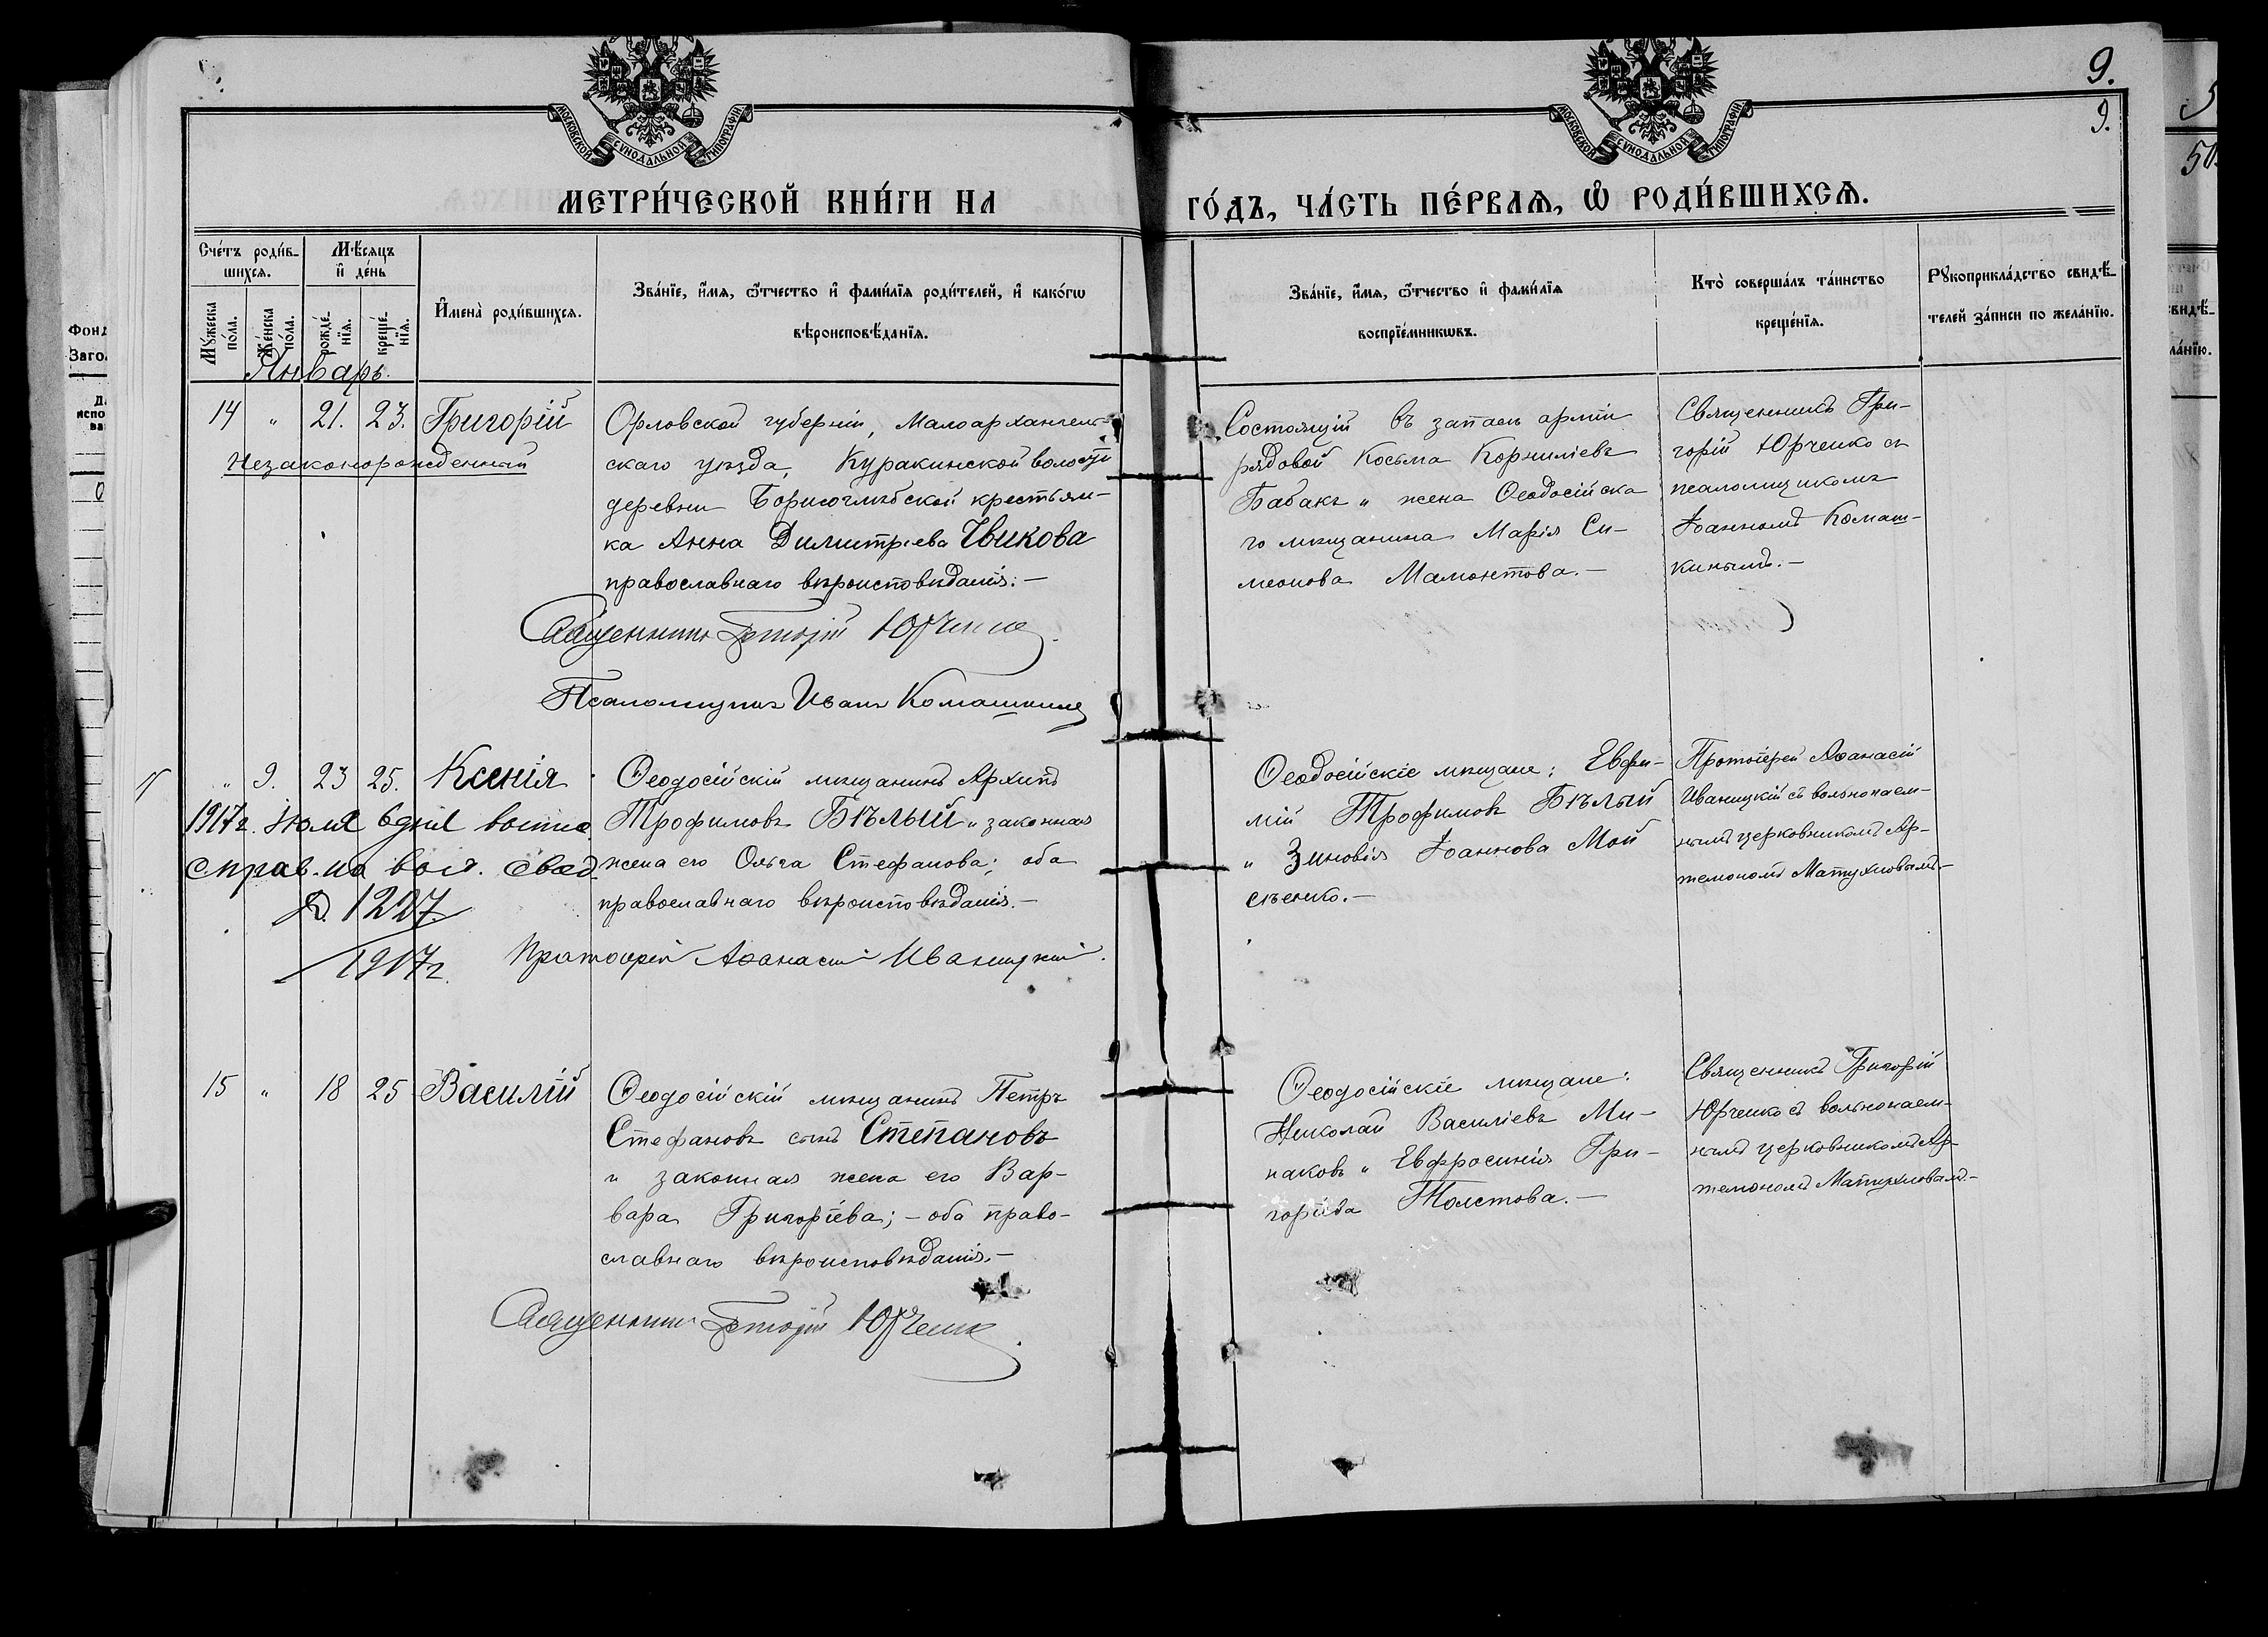 9.
9.
МОСКОВСКОЙ СѴНОДАЛЬНОЙ ТИПОГРАФІИ
МОСКОВСКОЙ СѴНОДАЛЬНОЙ ТИПОГРАФІИ
МЕТРИ́ЧЕСКОЙ КНИ́ГИ НА ГО́ДЪ, ЧА́СТЬ ПЕ́РВАЯ, Ѡ҆ РОДИ́ВШИХСЯ.
Сче́тъ роди́в-
шихся.
Мꙋ́жеска
по́ла.
Же́нска
по́ла.
Мѣ́сяцъ
и҆ де́нь
рожде́-
нїя.
креще́-
нїя.
И҆мена̀ роди́вшихся.
Зва́нїе, и҆́мя, ѻ҆́тчество и҆ фами́лїя роди́телей, и҆ како́гѡ
вѣроисповѣ́данїя.
Зва́нїе, и҆́мя, ѻ҆́тчество и҆ фами́лїя
воспрїе́мникѡвъ.
Кто̀ соверша́лъ та́инство
креще́нїя.
Рꙋкоприкла́дство свидѣ́-
телей за́писи по жела́нїю.
Январь.
14 " 21. 23. Григорій
Незаконорожденный
Орловской губерніи, Малоархангель-
скаго уѣзда, Куракинской волости
деревни Борисоглѣбской крестьян-
ка Анна Димитріева Чвикова
православнаго вѣроисповѣданія.—
Священникъ Григорій Юрченко
Псаломщикъ Иванъ Комашкинъ
Состоящій въ запасѣ арміи
рядовой Косьма Корниліевъ
Бабакъ и жена Ѳеодосійска
го мѣщанина Марія Си-
меонова Мамонтова.—
Священникъ Гри-
горій Юрченко съ
псаломщикомъ
Іоанномъ Комаш-
кинымъ.—
" 9. 23 25. Ксенія
1917г. Іюля 6 дня
справ. на
1227
1917г.
Ѳеодосійскій мѣщанинъ Архипъ
Трофимовъ Бѣлый и законная
жена его Ольга Стефанова; оба
православнаго вѣроисповѣданія.—
Протоіерей Аѳанасій Иваницкій.
Ѳеодосійскіе мѣщане: Евфи-
мій Трофимовъ Бѣлый
и Зиновія Іоаннова Мой
сѣенко.—
Протоіерей Аѳанасій
Иваницкій съ вольнонаем-
нымъ церковникомъ Ар-
темономъ Матухновымъ.—
15 " 18 25 Василій
Ѳеодосійскій мѣщанинъ Петръ
Стефановъ сынъ Степановъ
и законная жена его Вар-
вара Григоріева;— оба право-
славнаго вѣроисповѣданія.—
Священникъ Григорій Юрченко
Ѳеодосійскіе мѣщане:
Николай Василіевъ Ми-
наковъ и Евфросинія Гри-
горіева Толстова.—
Священникъ Григорій
Юрченко съ вольнонаем-
нымъ церковникомъ Ар-
темономъ Матухновымъ.—